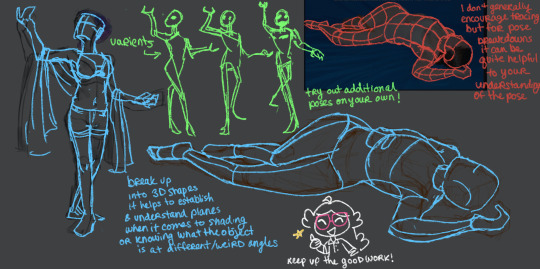 varients
I don't generally
encourage tracing
but for pose
breakdowns
it can be
quite helpful
to your
understanding
of the pose
try out additional
poses on your own!
break up
into 3D shapes
it helps to establish
& understand planes
when it comes to shading
or knowing what the object
is at different/weird angles
keep up the good work!